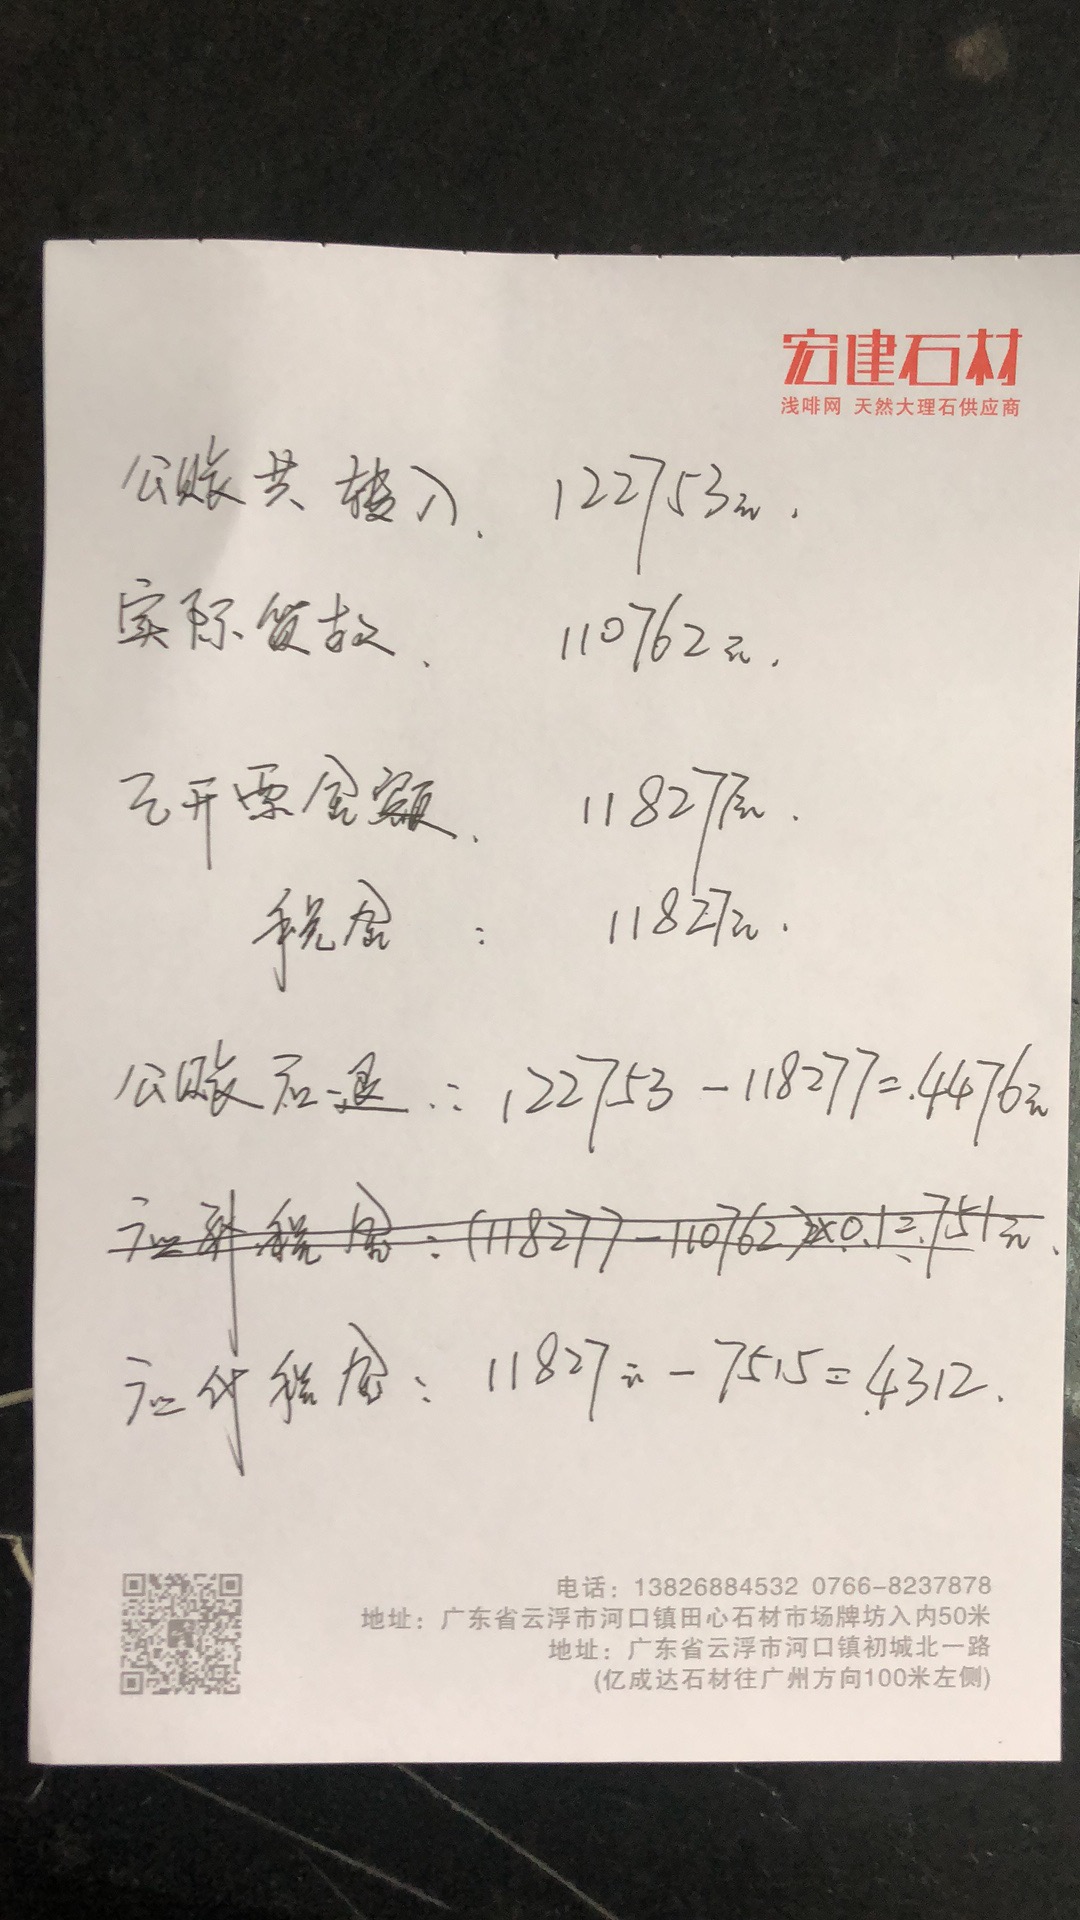 宏建石材
浅啡网 天然大理石供应商
公账共转入. 122753元.
实际货款. 110762元.
已开票金额. 118277元.
税金: 11827元.
公账应退: 122753-118277=4476元
应补税金:(118277-110762)×0.1=751元.
应付税金: 11827元-7515=4312.
电话:13826884532 0766-8237878
地址:广东省云浮市河口镇田心石材市场牌坊入内50米
地址:广东省云浮市河口镇初城北一路
(亿成达石材往广州方向100米左侧)